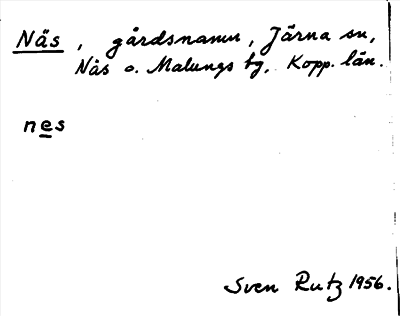 Näs, gårdsnamn, Järna sn,
Nås o. Malungs tg, Kopp. län.
nes
Sven Rutz 1956.